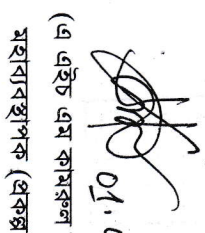 (এ এইচ এম কামরুল
মহাব্যবস্থাপক (প্রকল্প